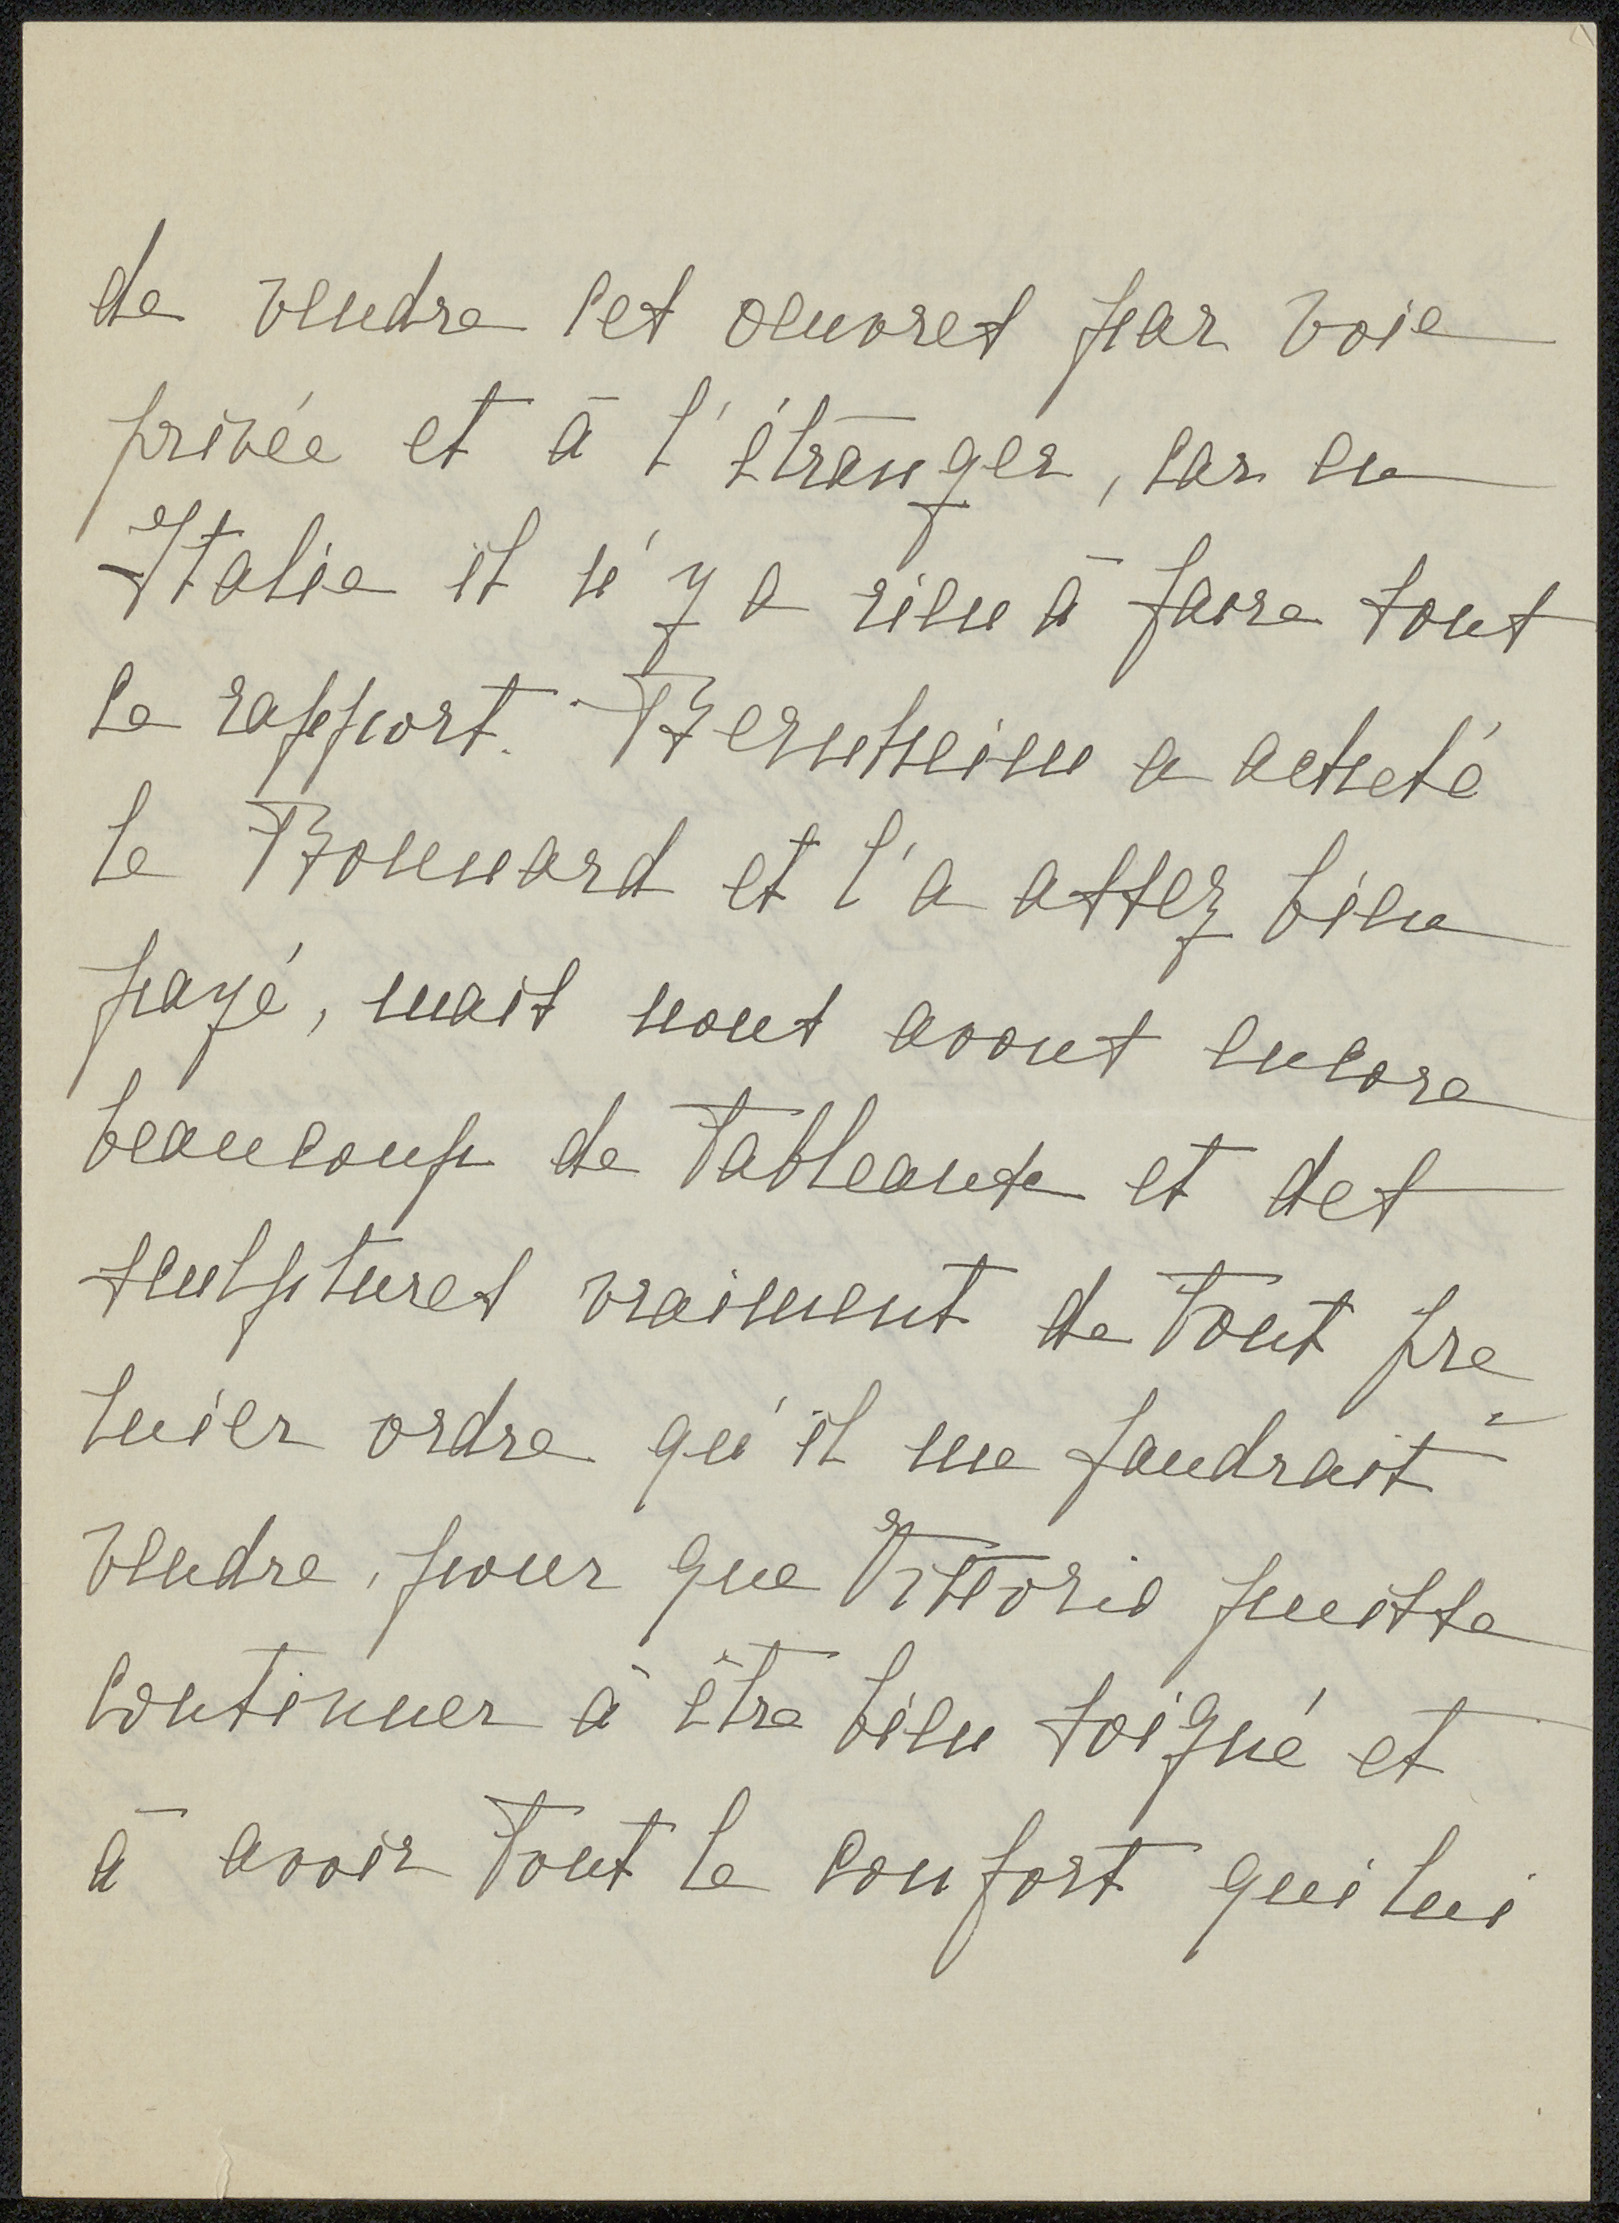 de vendre cet oeuvres par voie
privée et à l'étranger, car en
Italie il n'y a rien à faire sous
ce rapport. Bernheim a acheté
le Bonnard et l'a assez bien
payé, mais nous avons encore
beaucoup de tableaux et des
sculptures vraiment de tout pre
mier ordre qu'il me faudrait
vendre, pour que Vittorio puisse
continuer à être bien soigné et
à avoir tout le confort qui lui